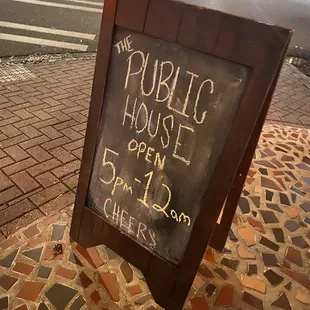 THE
PUBLIC
HOUSE
OPEN
5pm-12am
CHEERS